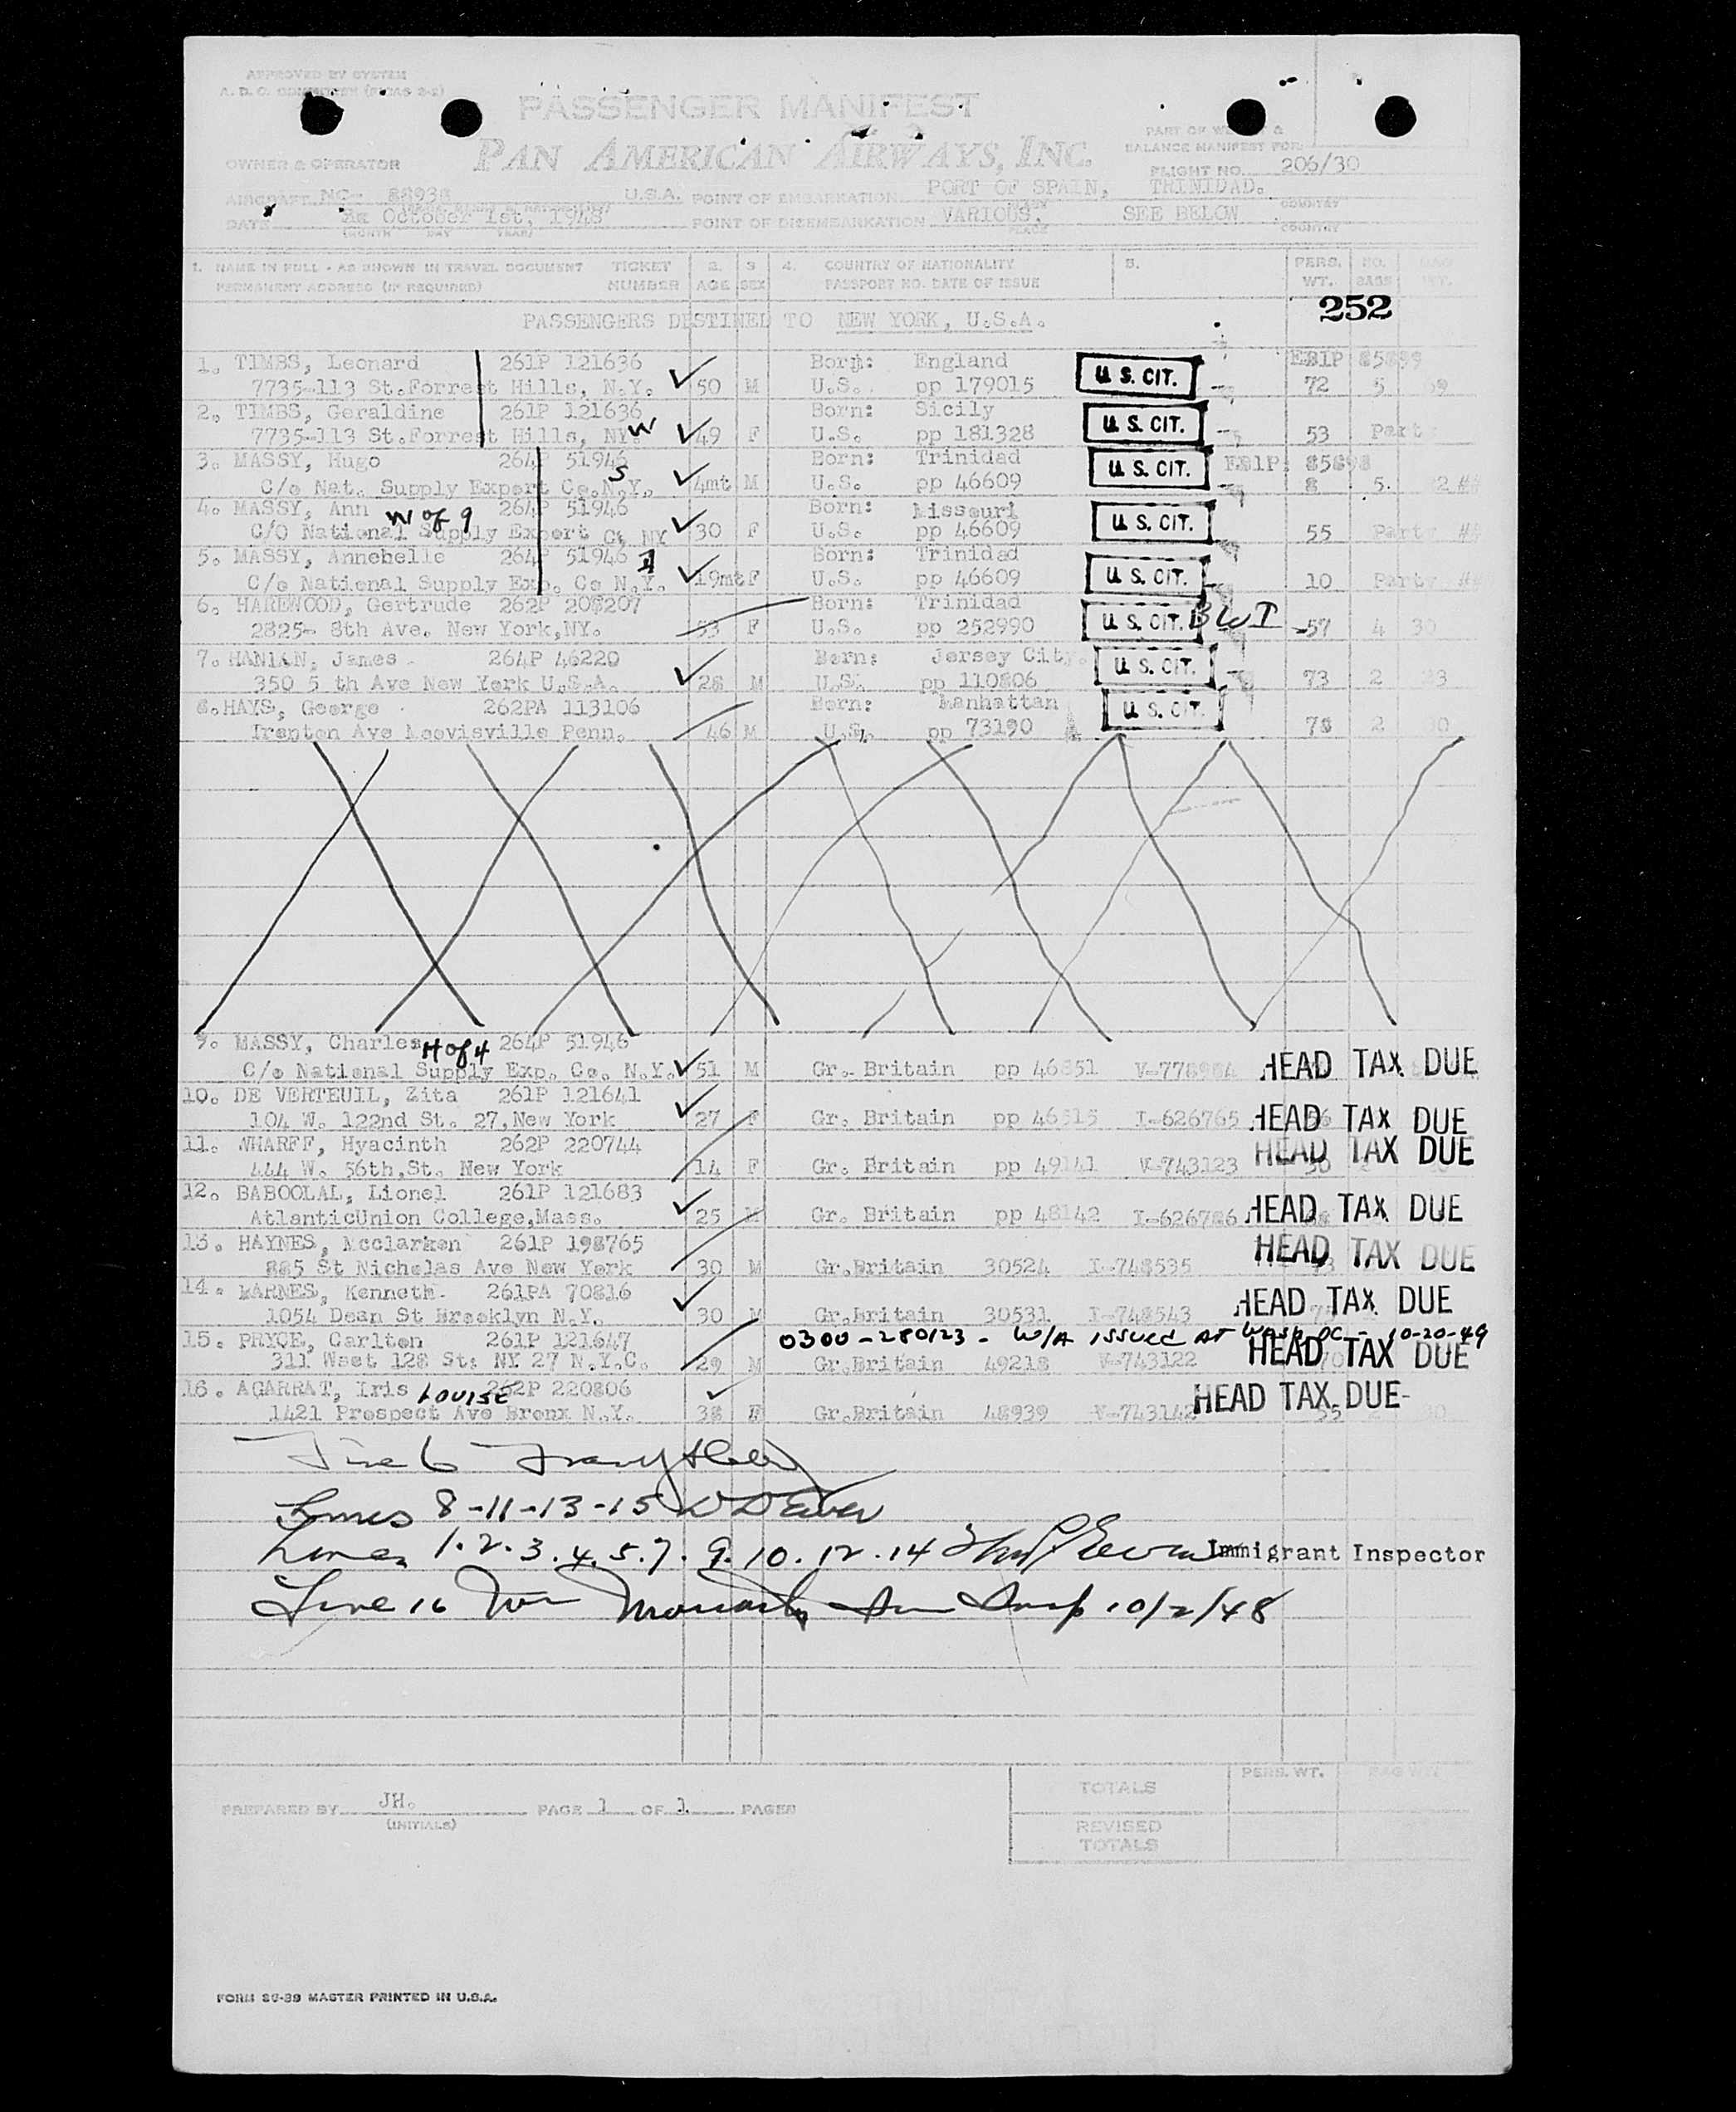 APPROVED BY SYSTEM
PASSENGER MANIFEST
PAN AMERICAN AIRWAYS, INC.
PART OF WEIGHT &
BALANCE MANIFEST FOR
OWNER & OPERATOR
FLIGHT NO. 206/30
AIRCRAFT NC- 88938 U.S.A. POINT OF EMBARKATION PORT OF SPAIN, TRINIDAD.
DATE October 1st, 1948 POINT OF DISEMBARKATION VARIOUS. SEE BELOW
(MONTH DAY YEAR) PLACE COUNTRY
1. NAME IN FULL - AS SHOWN IN TRAVEL DOCUMENT TICKET 2. 3 4. COUNTRY OF NATIONALITY 5. PERS. NO. BAG
PERMANENT ADDRESS (IF REQUIRED) NUMBER AGE SEX PASSPORT NO. DATE OF ISSUE WT. BAGS WT.
252
PASSENGERS DESTINED TO NEW YORK, U.S.A.
1. TIMBS, Leonard 261P 121636 Born: England
7735-113 St.Forrest Hills, N.Y. 50 M U.S. pp 179015 U.S. CIT. 72 5
2. TIMBS, Geraldine 261P 121636 Born: Sicily
7735-113 St.Forrest Hills, NY. W 49 F U.S. pp 181328 U.S. CIT. 53 Part
3. MASSY, Hugo 264P 51946 Born: Trinidad
C/o Nat. Supply Export Co.N.Y. S 4mt M U.S. pp 46609 U.S. CIT. 8 5.
4. MASSY, Ann W of 9 264P 51946 Born: Missouri
C/O National Supply Export Co NY 30 F U.S. pp 46609 U.S. CIT. 55 Party
5. MASSY, Annebelle 264P 51946 Born: Trinidad
C/o National Supply Exp. Co N.Y. 19mt F U.S. pp 46609 U.S. CIT. 10 Party
6. HAREWOOD, Gertrude 262P 208207 Born: Trinidad
2825- 8th Ave. New York,NY. 53 F U.S. pp 252990 U.S. CIT. BWI 57 4 30
7. HANLON, James 264P 46220 Born: Jersey City.
350 5 th Ave New York U.S.A. 28 M U.S. pp 110806 U.S. CIT. 73 2
8. HAYS, George 262PA 113106 Born: Manhattan
Trenton Ave Moovisville Penn. 46 M U.S. pp 73190 U.S. CIT. 78 2
9. MASSY, Charles H of 4 264P 51946
C/o National Supply Exp. Co. N.Y. 51 M Gr. Britain pp 46351 HEAD TAX DUE
10. DE VERTEUIL, Zita 261P 121641
104 W. 122nd St. 27,New York 27 F Gr. Britain pp 46515 I-626765 HEAD TAX DUE
11. WHARFF, Hyacinth 262P 220744
444 W. 56th,St. New York 14 F Gr. Britain pp 49141 V-743123 HEAD TAX DUE
12. BABOOLAL, Lionel 261P 121683
AtlanticUnion College,Mass. 25 M Gr. Britain pp 48142 I-626786 HEAD TAX DUE
13. HAYNES, Mcclarken 261P 198765
885 St Nicholas Ave New York 30 M Gr.Britain 30524 I-748535 HEAD TAX DUE
14. BARNES, Kenneth. 261PA 70816
1054 Dean St Brooklyn N.Y. 30 M Gr.Britain 30531 I-748543 HEAD TAX DUE
15. PRYCE, Carlton 261P 121647 0300-280123 - W/A ISSUED AT WASH DC - 10-20-49
311 West 128 St: NY 27 N.Y.C. 29 M Gr.Britain 49218 V-743122 HEAD TAX DUE
16. AGARRAT, Iris LOUISE 262P 220806
1421 Prospect Ave Bronx N.Y. 38 F Gr.Britain 48939 V-743142 HEAD TAX DUE 55
Line 6
Lines 8-11-13-15
Lines 1.2.3.4.5.7.9.10.12.14 Immigrant Inspector
Line 16 Imm Insp 10/2/48
TOTALS PERS. WT. BAG WT.
PREPARED BY JH. PAGE 1 OF 1 PAGES
(INITIALS)
REVISED
TOTALS
FORM SU-39 MASTER PRINTED IN U.S.A.